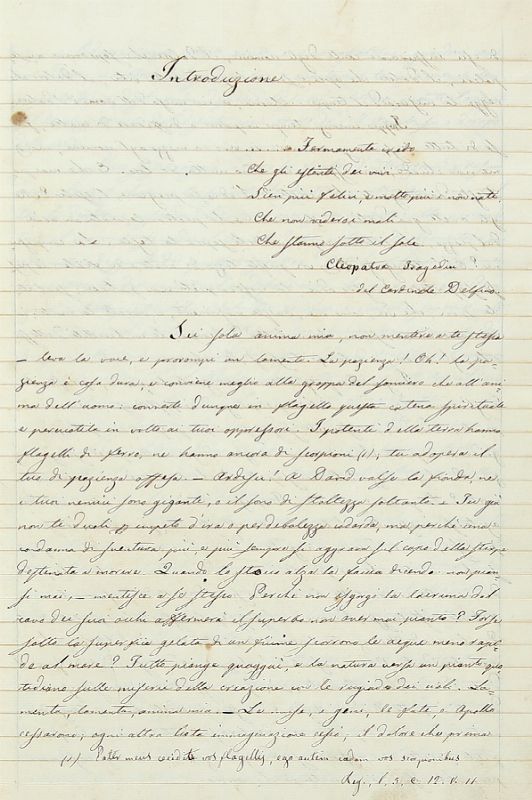 Introduzione
Fermamente credo
Che gli estinti dei vivi
Sien più felici, e molto più i non nati
Che non videro i mali
Che stanno sotto il sole
Cleopatra Tragedia
del Cardinale Delfino
Sei sola anima mia, non mentire a te stessa
– leva la voce, e prorompi un lamento. La pazienza! Oh! la pa-
zienza è cosa dura, e conviene meglio alla groppa del somiero che all'ani
ma dell'uomo: converti dunque in flagello questa catena spirituale
e percuotila in volto ai tuoi oppressori. I potenti della terra hanno
flagelli di ferro, ne hanno ancora di scorpioni (1), tu adopera il
tuo di pazienza offesa. – Ardisci! A David valse la fionda, nè
i tuoi nemici sono giganti, o il sono di stoltezza soltanto. E Tu già
non ti duoli impeto d'ira o per debolezza codarda, ma perchè una
condanna di sventura più e più sempre si aggrava sul capo della stirpe
destinata a morire. Quando lo stoico alza la faccia dicendo non pian-
si mai, – mentisce a se stesso. Perchè non sgorghi la lacrima dal
cavo dei suoi occhi affermerà il superbo non aver mai pianto? Forse
sotto la superficie gelata di un fiume scorrono le acque meno rapi-
de al mare? Tutto piange quaggiù, e la natura versa un pianto quo
tidiano sulle miserie della creazione con le rugiade dei cieli. La-
menta, lamenta, anima mia. – Le muse, i geni, le fate, e Apollo
cessarono; ogni altra lieta immaginazione cessò, il dolore che prima
(1) Pater meus cecidit vos flagellis, ego autem cædam vos scorpionibus
Reg. l. 3. c. 12. v. 11